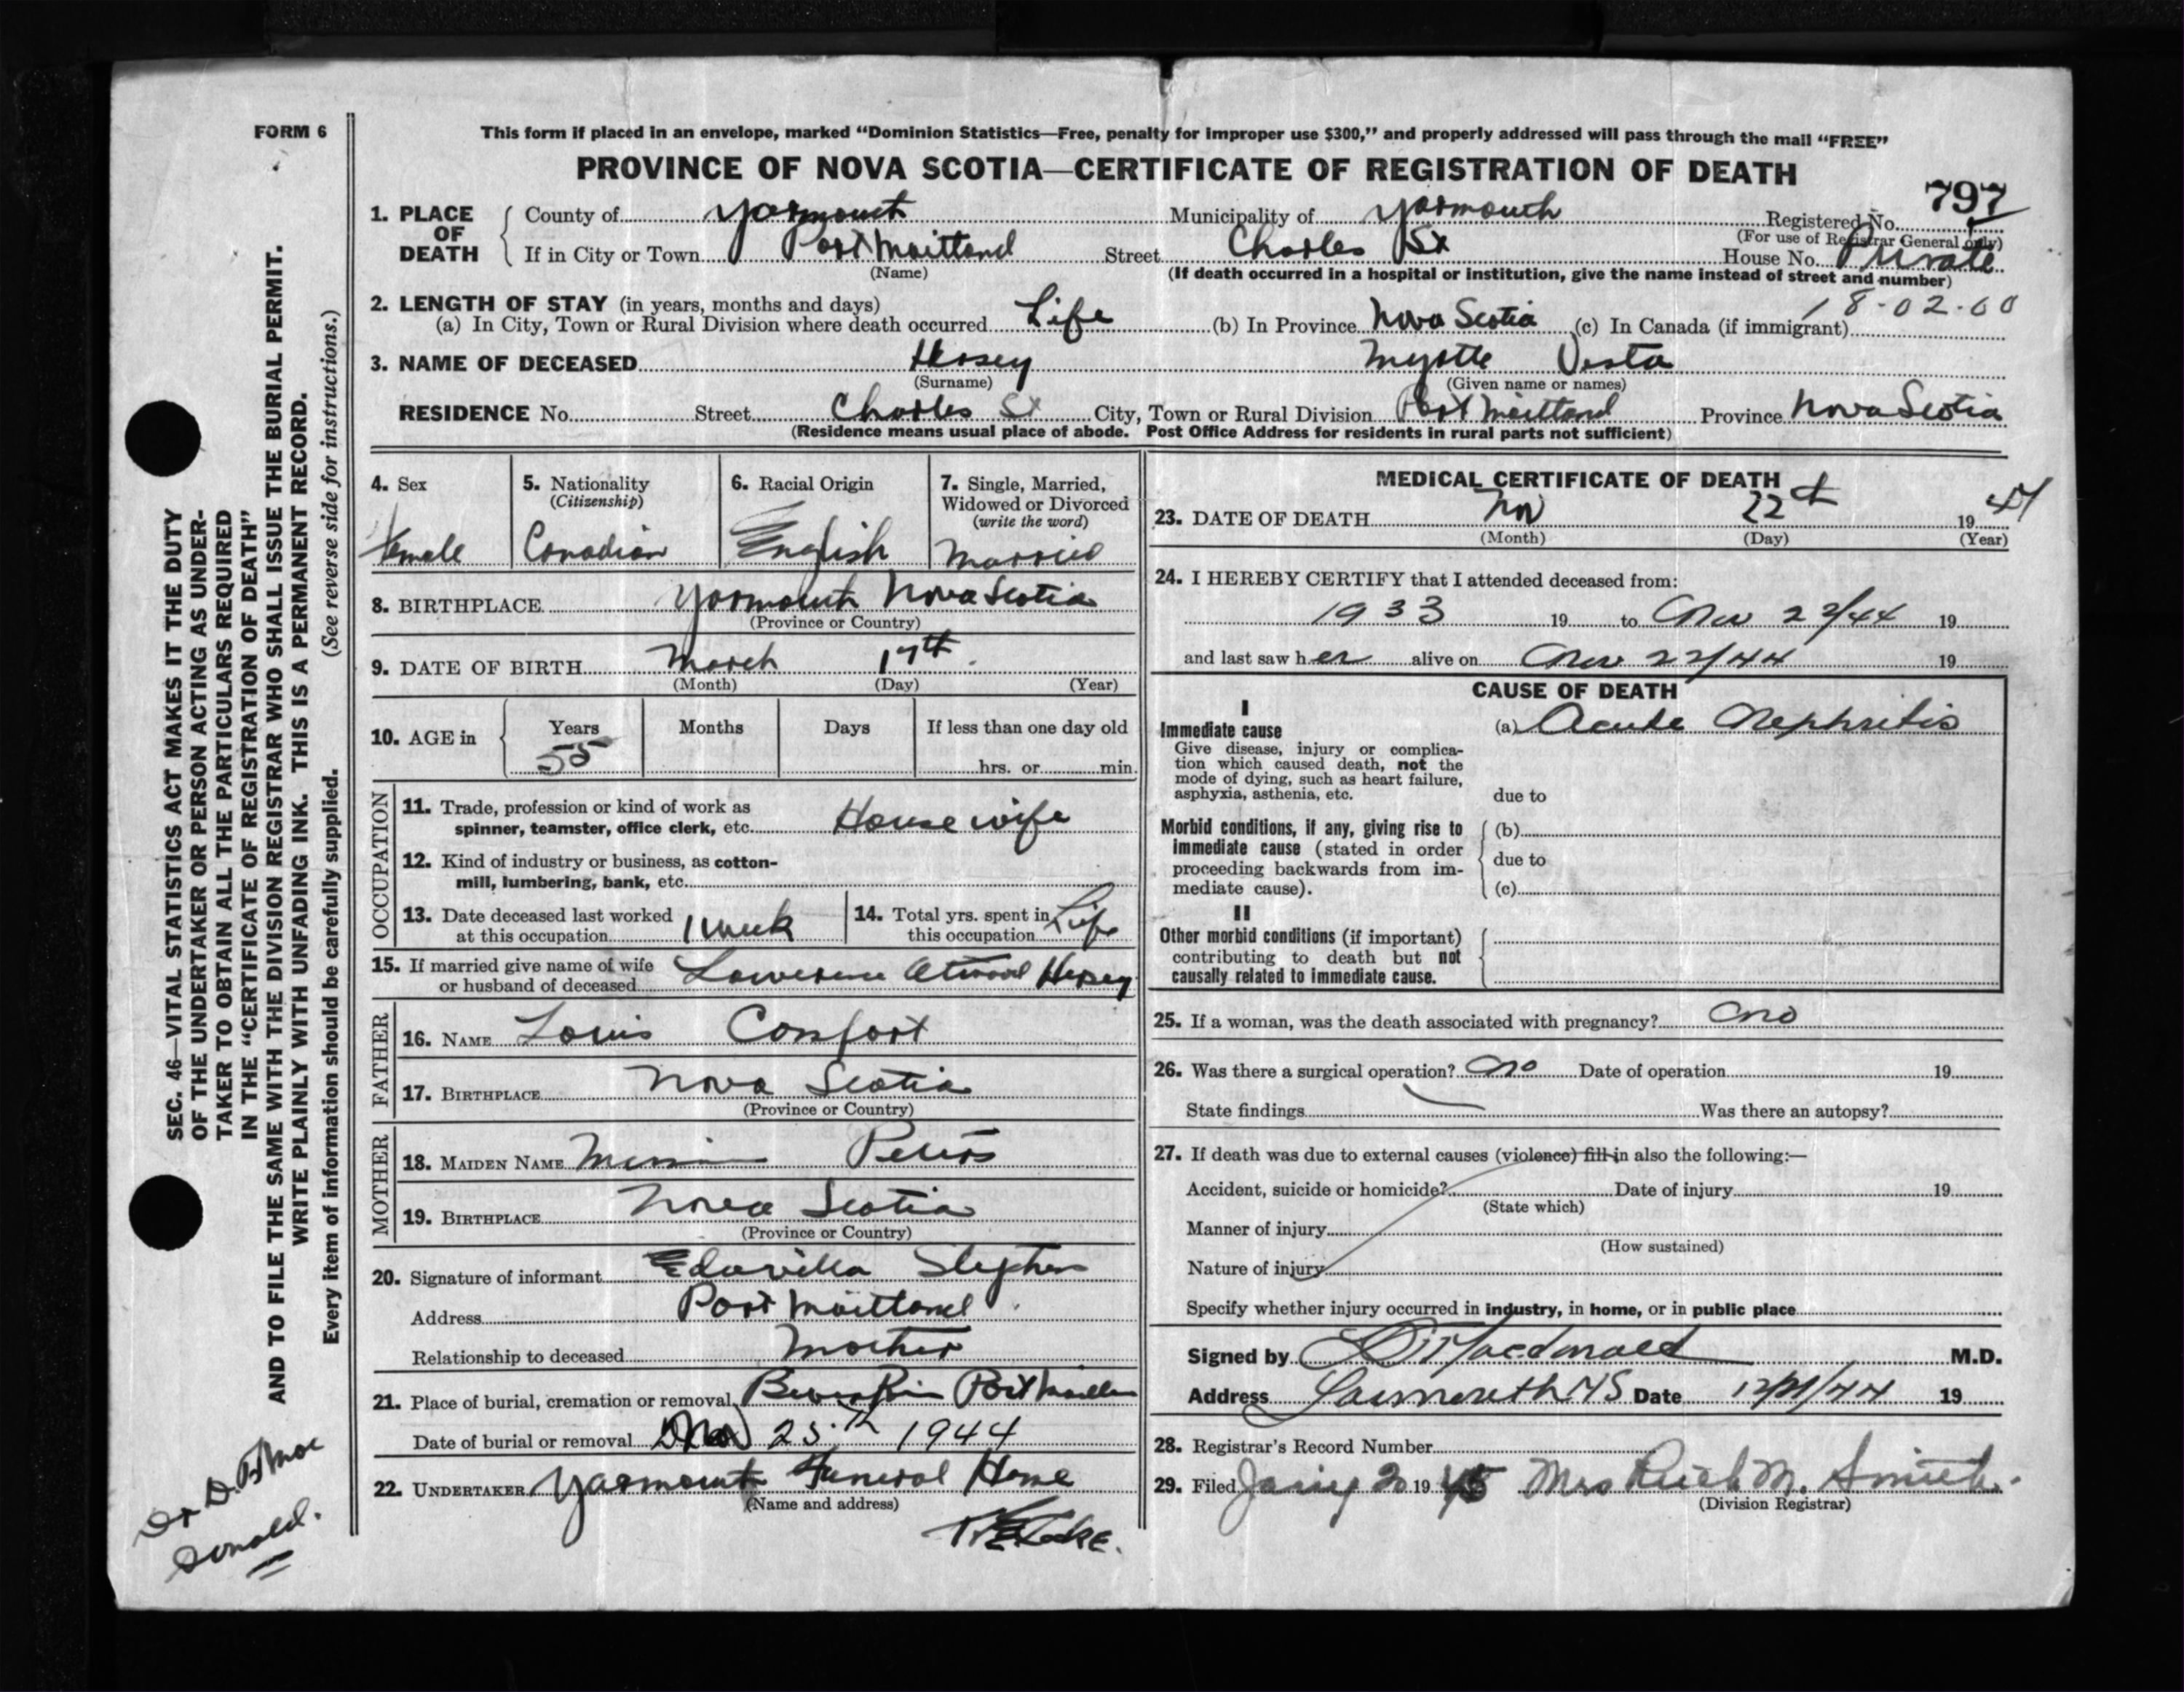 FORM 6
This form if placed in an envelope, marked “Dominion Statistics—Free, penalty for improper use $300,” and properly addressed will pass through the mail “FREE”
PROVINCE OF NOVA SCOTIA—CERTIFICATE OF REGISTRATION OF DEATH
797
1. PLACE OF DEATH County of Yarmouth Municipality of Yarmouth Registered No.
(For use of Registrar General only)
If in City or Town Port Maitland Street Charles St House No. Private
(Name) (If death occurred in a hospital or institution, give the name instead of street and number)
18-02-00
2. LENGTH OF STAY (in years, months and days)
(a) In City, Town or Rural Division where death occurred Life (b) In Province Nova Scotia (c) In Canada (if immigrant)
3. NAME OF DECEASED Hersey Myrtle Vesta
(Surname) (Given name or names)
RESIDENCE No. Street Charles St City, Town or Rural Division Port Maitland Province Nova Scotia
(Residence means usual place of abode. Post Office Address for residents in rural parts not sufficient)
4. Sex Female
5. Nationality (Citizenship) Canadian
6. Racial Origin English
7. Single, Married, Widowed or Divorced (write the word) Married
8. BIRTHPLACE Yarmouth Nova Scotia
(Province or Country)
9. DATE OF BIRTH March 17th
(Month) (Day) (Year)
10. AGE in Years 55 Months Days If less than one day old
hrs. or min.
OCCUPATION
11. Trade, profession or kind of work as
spinner, teamster, office clerk, etc. Housewife
12. Kind of industry or business, as cotton-
mill, lumbering, bank, etc.
13. Date deceased last worked
at this occupation 1 week
14. Total yrs. spent in
this occupation Life
15. If married give name of wife
or husband of deceased Atwood Hersey
FATHER
16. NAME Louis
17. BIRTHPLACE Nova Scotia
(Province or Country)
MOTHER
18. MAIDEN NAME Peters
19. BIRTHPLACE Nova Scotia
(Province or Country)
20. Signature of informant
Address Port Maitland
Relationship to deceased Mother
21. Place of burial, cremation or removal Port
Date of burial or removal 25th 1944
22. UNDERTAKER Yarmouth Funeral Home
(Name and address)
MEDICAL CERTIFICATE OF DEATH
23. DATE OF DEATH Nov 22 19 44
(Month) (Day) (Year)
24. I HEREBY CERTIFY that I attended deceased from:
1933 19 to Nov 22/44 19
and last saw her alive on Nov 22/44 19
CAUSE OF DEATH
I
Immediate cause (a) Acute Nephritis
Give disease, injury or complica-
tion which caused death, not the
mode of dying, such as heart failure,
asphyxia, asthenia, etc. due to
Morbid conditions, if any, giving rise to (b)
immediate cause (stated in order
proceeding backwards from im- due to
mediate cause). (c)
II
Other morbid conditions (if important)
contributing to death but not
causally related to immediate cause.
25. If a woman, was the death associated with pregnancy? no
26. Was there a surgical operation? no Date of operation 19
State findings Was there an autopsy?
27. If death was due to external causes (violence) fill in also the following:—
Accident, suicide or homicide? Date of injury 19
(State which)
Manner of injury
(How sustained)
Nature of injury
Specify whether injury occurred in industry, in home, or in public place
Signed by Macdonald M.D.
Address Yarmouth NS Date 19
28. Registrar's Record Number
29. Filed 19 45 Mrs Ruth M. Smith
(Division Registrar)
SEC. 46—VITAL STATISTICS ACT MAKES IT THE DUTY
OF THE UNDERTAKER OR PERSON ACTING AS UNDER-
TAKER TO OBTAIN ALL THE PARTICULARS REQUIRED
IN THE “CERTIFICATE OF REGISTRATION OF DEATH”
AND TO FILE THE SAME WITH THE DIVISION REGISTRAR WHO SHALL ISSUE THE BURIAL PERMIT.
WRITE PLAINLY WITH UNFADING INK. THIS IS A PERMANENT RECORD.
Every item of information should be carefully supplied. (See reverse side for instructions.)